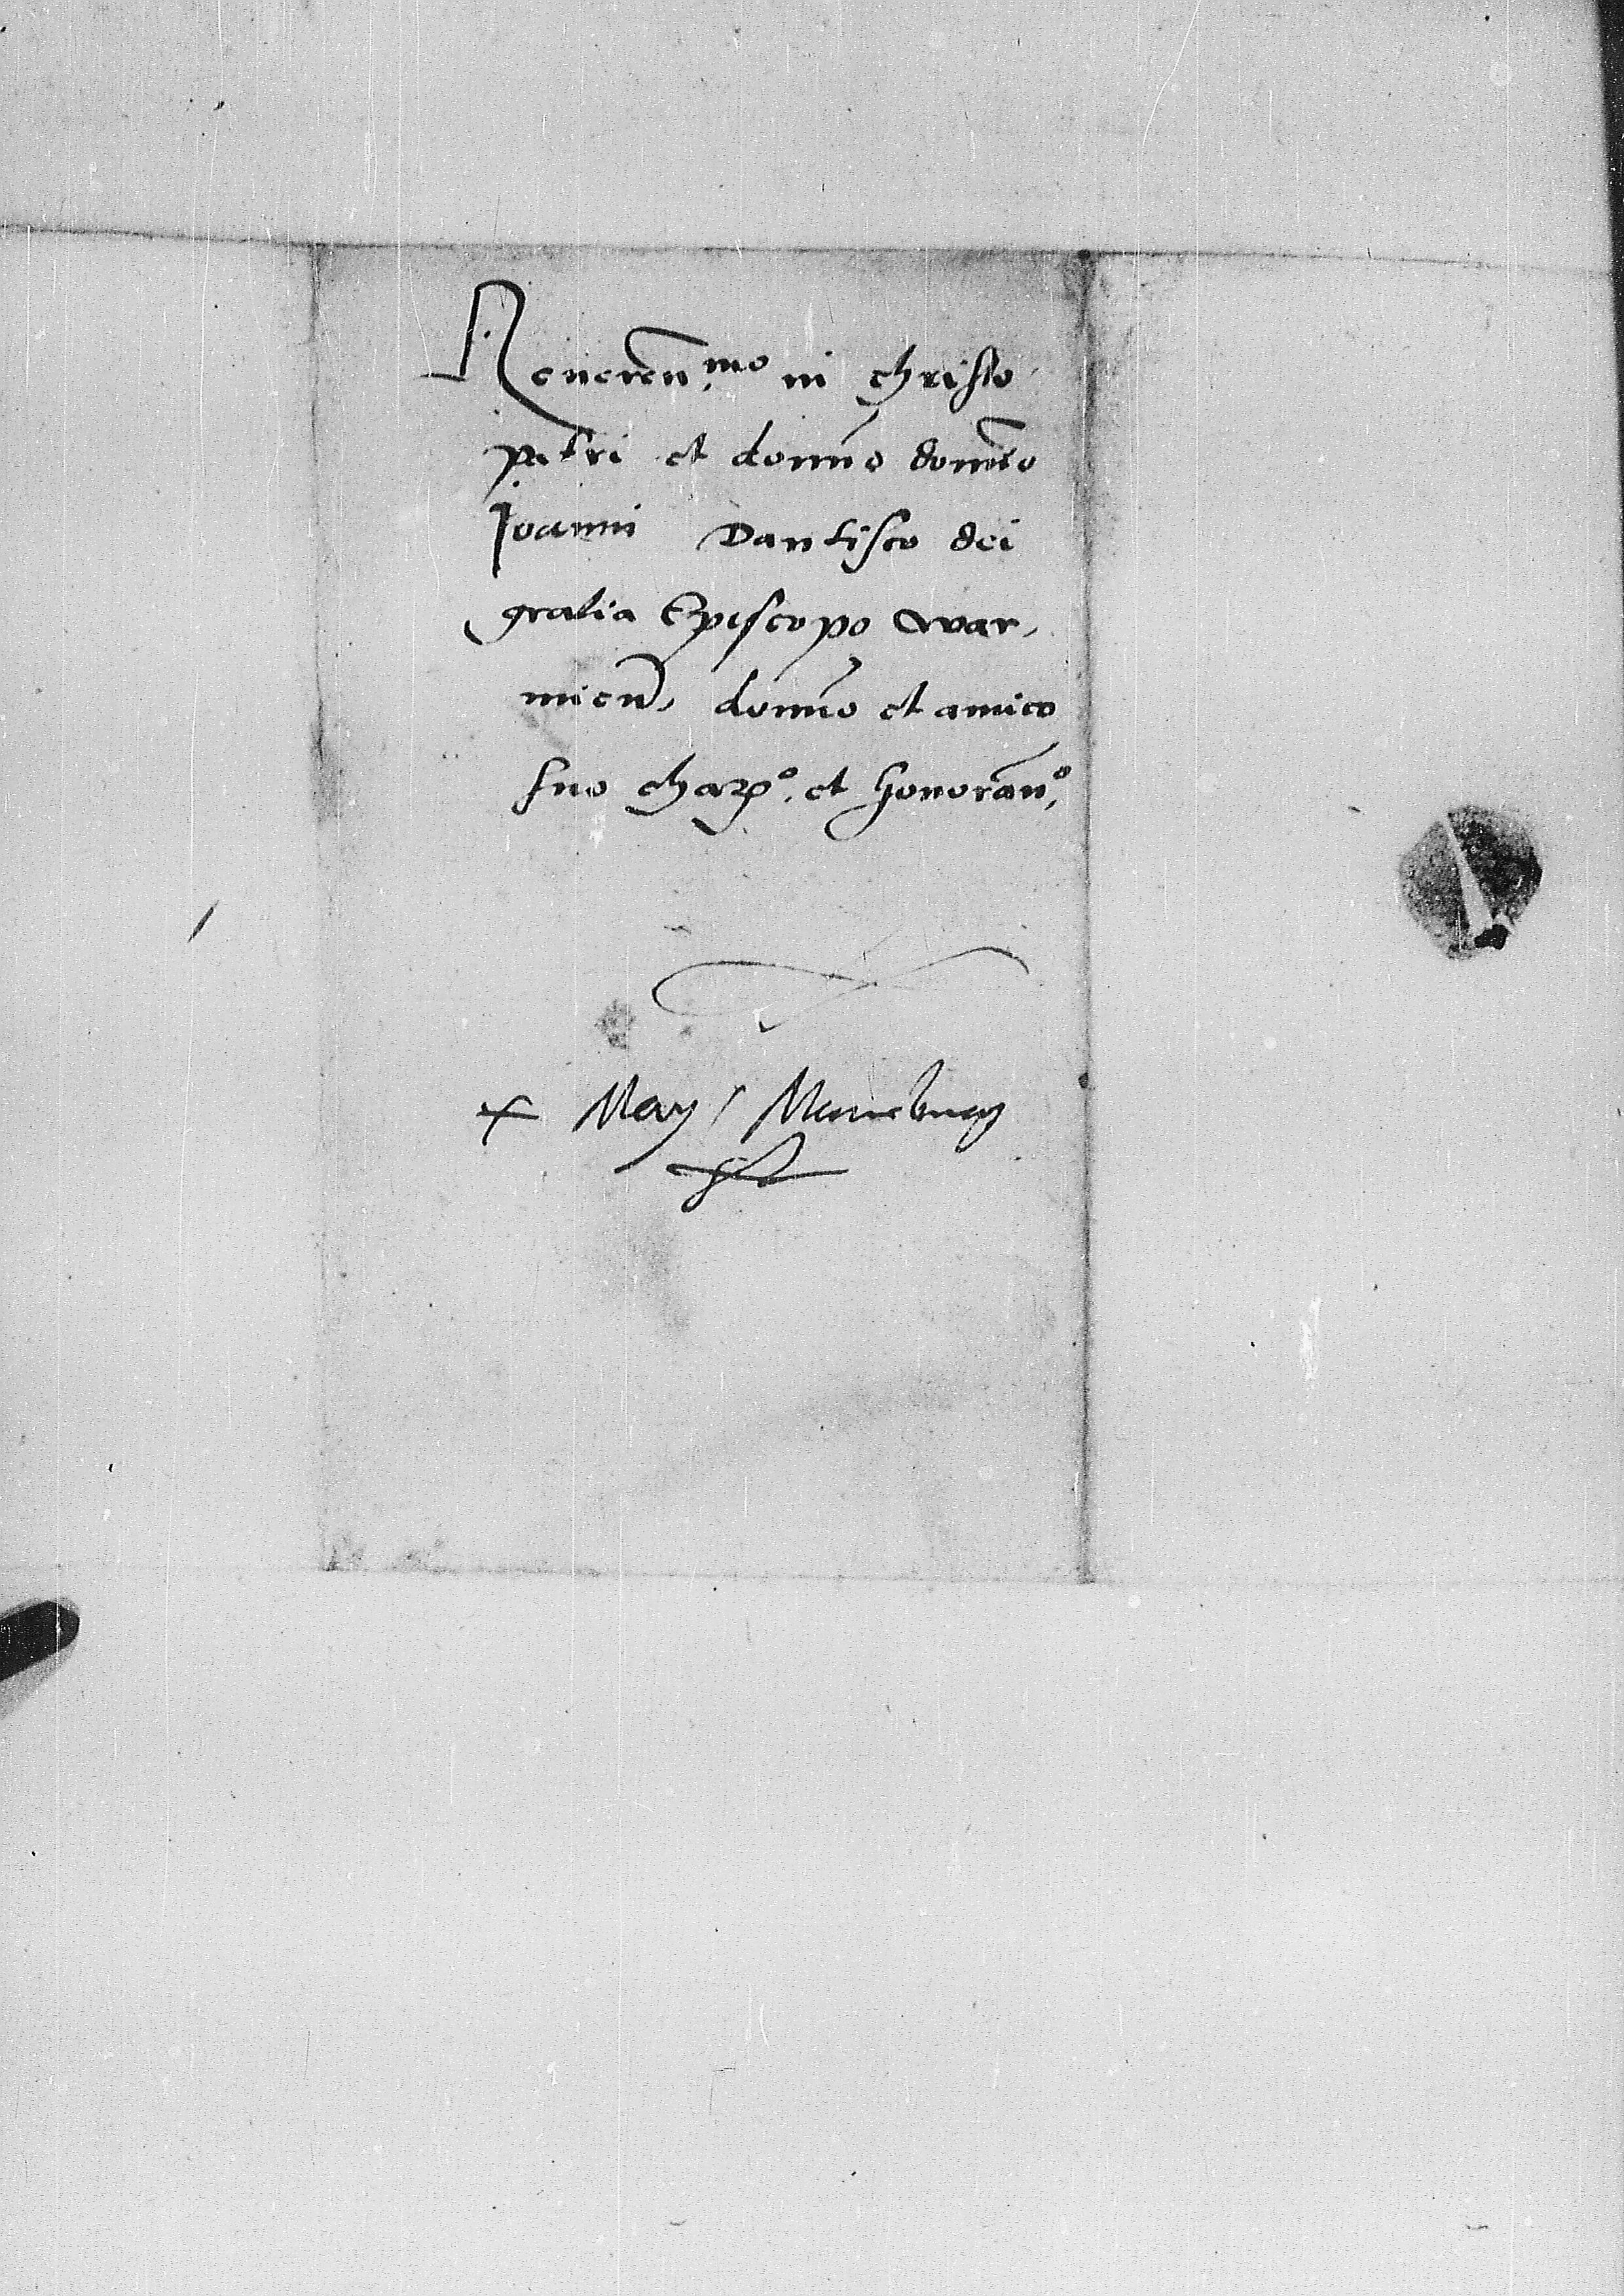 Reueren.mo in christo
patri et domno domino
Joanni Dantisco dei
gratia Episcopo War,
mien, domno et amico
suo chariss.o et honoran.o
x May / Marieburg